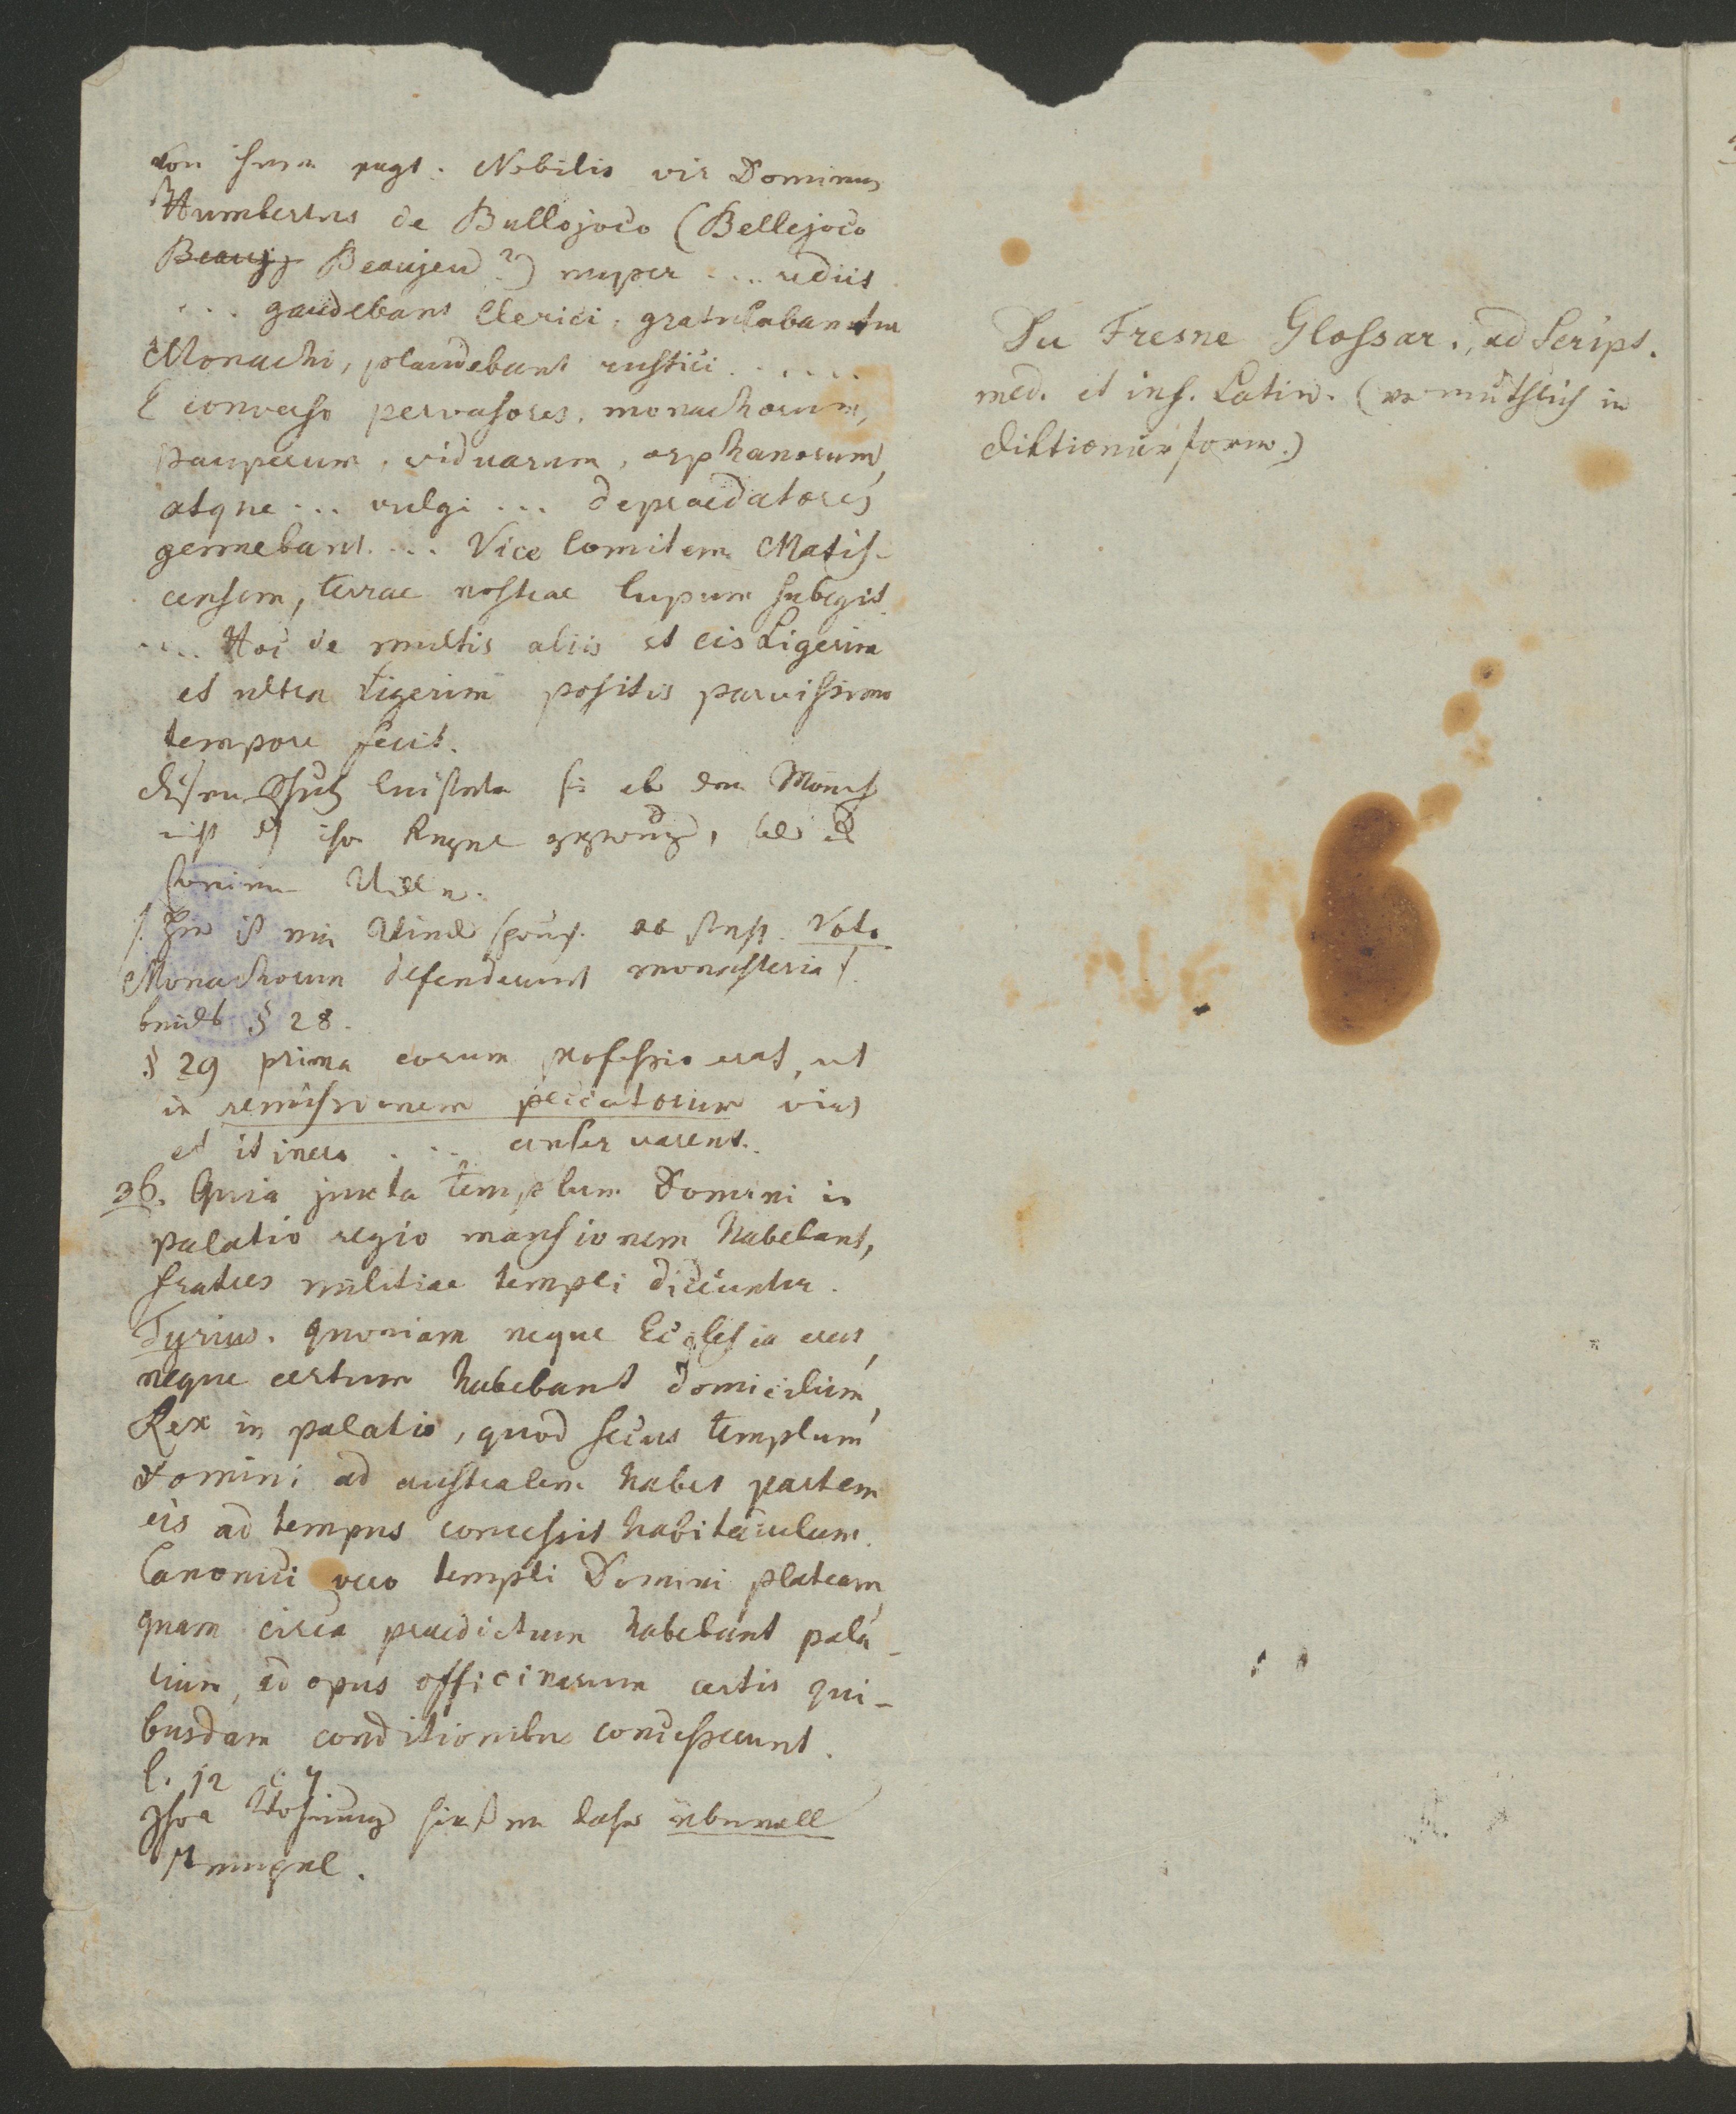 von ihnen sagt. Nobilis vir Dominus
Humbertus de Bellojoco (Bellejoco
Beauj Beaujeu?) nuper ... rediit
... gaudebant Clerici, gratulabantur
Monachi, plaudebant rustici......
E converso pervasores, monachorum,
pauperum, viduarum, orphanorum,
atque ... vulgi ... depraedatores
gemebant.... Vice Comitem Matis-
censem, terrae nostrae lupum subegit
.... Hoc de multis aliis et cis Ligerim
et ultra Ligerim positis parvissimo
tempore fecit.
diesen Schutz leisteten sie aber den Mönch
nicht durch ihre Regel gezwung, sondern
freien Willen.
Hier ist ein Widerspruch. es steht Voto
Monachorum defenderunt monasteria
§ 28.
§ 29 prima eorum professio erat, ut
in remissionem peccatorum vias
et itinera ... conservarent.
36. Quia juxta templum Domini in
palatio regio mansionem habebant,
fratres militiae templi dicuntur.
Tyrius. quoniam neque Ecclesia erat,
neque certum habebant domicilium,
Rex in palatio, quod secus templum
Domini ad australem habet partem
eis ad tempus concessit habitaculum.
Canonici vero templi Domini plateam,
quam circa praedictum habebant pala-
tium, ad opus officinarum certis qui-
busdam conditionibus concesserunt.
l. 12 c. 7
Ihre Wohnung hieß daher überall
Tempel.
Du Fresne Glossar. ad Script.
med. et inf. Latin. (vermuthlich in
diktionärform.)